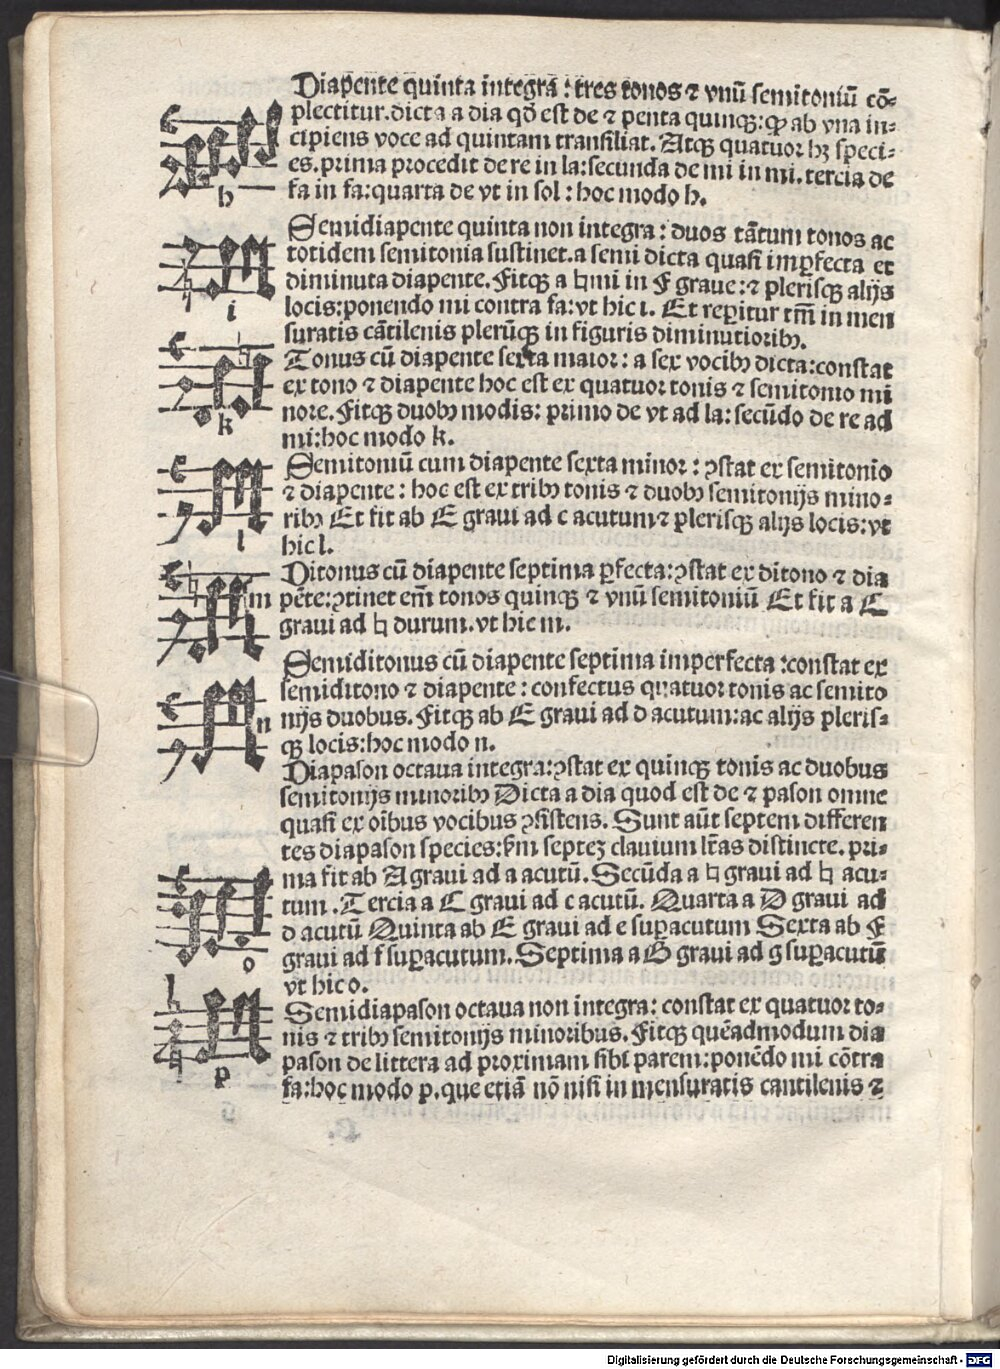 Diapēnte quinta integra : tres tonos ⁊ vnū semitoniū cō⸗
plectitur. dicta a dia qđ est de ⁊ penta quinqȝ: qꝫ ab vna in⸗
cipiens voce ad quintam transiliat. Atqȝ quatuor hȝ speci⸗
es. prima procedit de re in la: secunda de mi in mi. tercia de
fa in fa: quarta de vt in sol : hoc modo h.
h
Semidiapente quinta non integra : duos tātum tonos ac
totidem semitonia sustinet. a semi dicta quasi imꝑfecta et
diminuta diapente. Fitqȝ a ♮ mi in F graue: ⁊ plerisqȝ alijs
locis: ponendo mi contra fa: vt hic i. Et reꝑitur tm̄ in men
suratis cātilenis plerūqȝ in figuris diminutioribꝰ.
i
Tonus cū diapente sexta maior : a sex vocibꝰ dicta: constat
ex tono ⁊ diapente hoc est ex quatuor tonis ⁊ semitonio mi
nore. Fitqȝ duobꝰ modis: primo de vt ad la: secūdo de re ad
mi: hoc modo k.
k
Semitoniū cum diapente sexta minor : ꝯstat ex semitonio
⁊ diapente : hoc est ex tribꝰ tonis ⁊ duobꝰ semitonijs mino⸗
ribꝰ Et fit ab E graui ad c acutum ⁊ plerisqȝ alijs locis: vt
hic l.
l
Ditonus cū diapente septima ꝑfecta: ꝯstat ex ditono ⁊ dia
pēte: ꝯtinet em̄ tonos quinqȝ ⁊ vnū semitoniū Et fit a C
graui ad ♮ durum. vt hic m.
m
Semiditonus cū diapente septima imperfecta : constat ex
semiditono ⁊ diapente : confectus quatuor tonis ac semito
nijs duobus. Fitqȝ ab E graui ad d acutum: ac alijs pleris⸗
qȝ locis: hoc modo n.
n
Diapason octaua integra: ꝯstat ex quinqȝ tonis ac duobus
semitonijs minoribꝰ Dicta a dia quod est de ⁊ pason omne
quasi ex oībus vocibus ꝯsistens. Sunt aūt septem differen
tes diapason species: ẜm septeȝ clauium lr̄as distincte. pri⸗
ma fit ab A graui ad a acutū. Secūda a ♮ graui ad ♮ acu⸗
tum . Tercia a C graui ad c acutū. Quarta a D graui ad
d acutū Quinta ab E graui ad e suꝑacutum Sexta ab F
graui ad f suꝑacutum. Septima a G graui ad g suꝑacutū
vt hic o.
o
Semidiapason octaua non integra: constat ex quatuor to⸗
nis ⁊ tribꝰ semitonijs minoribus. Fitqȝ quēadmodum dia
pason de littera ad proximam sibi parem: ponēdo mi cōtra
fa: hoc modo p. que etiā nō nisi in mensuratis cantilenis ⁊
p
Digitalisierung gefördert durch die Deutsche Forschungsgemeinschaft - DFG